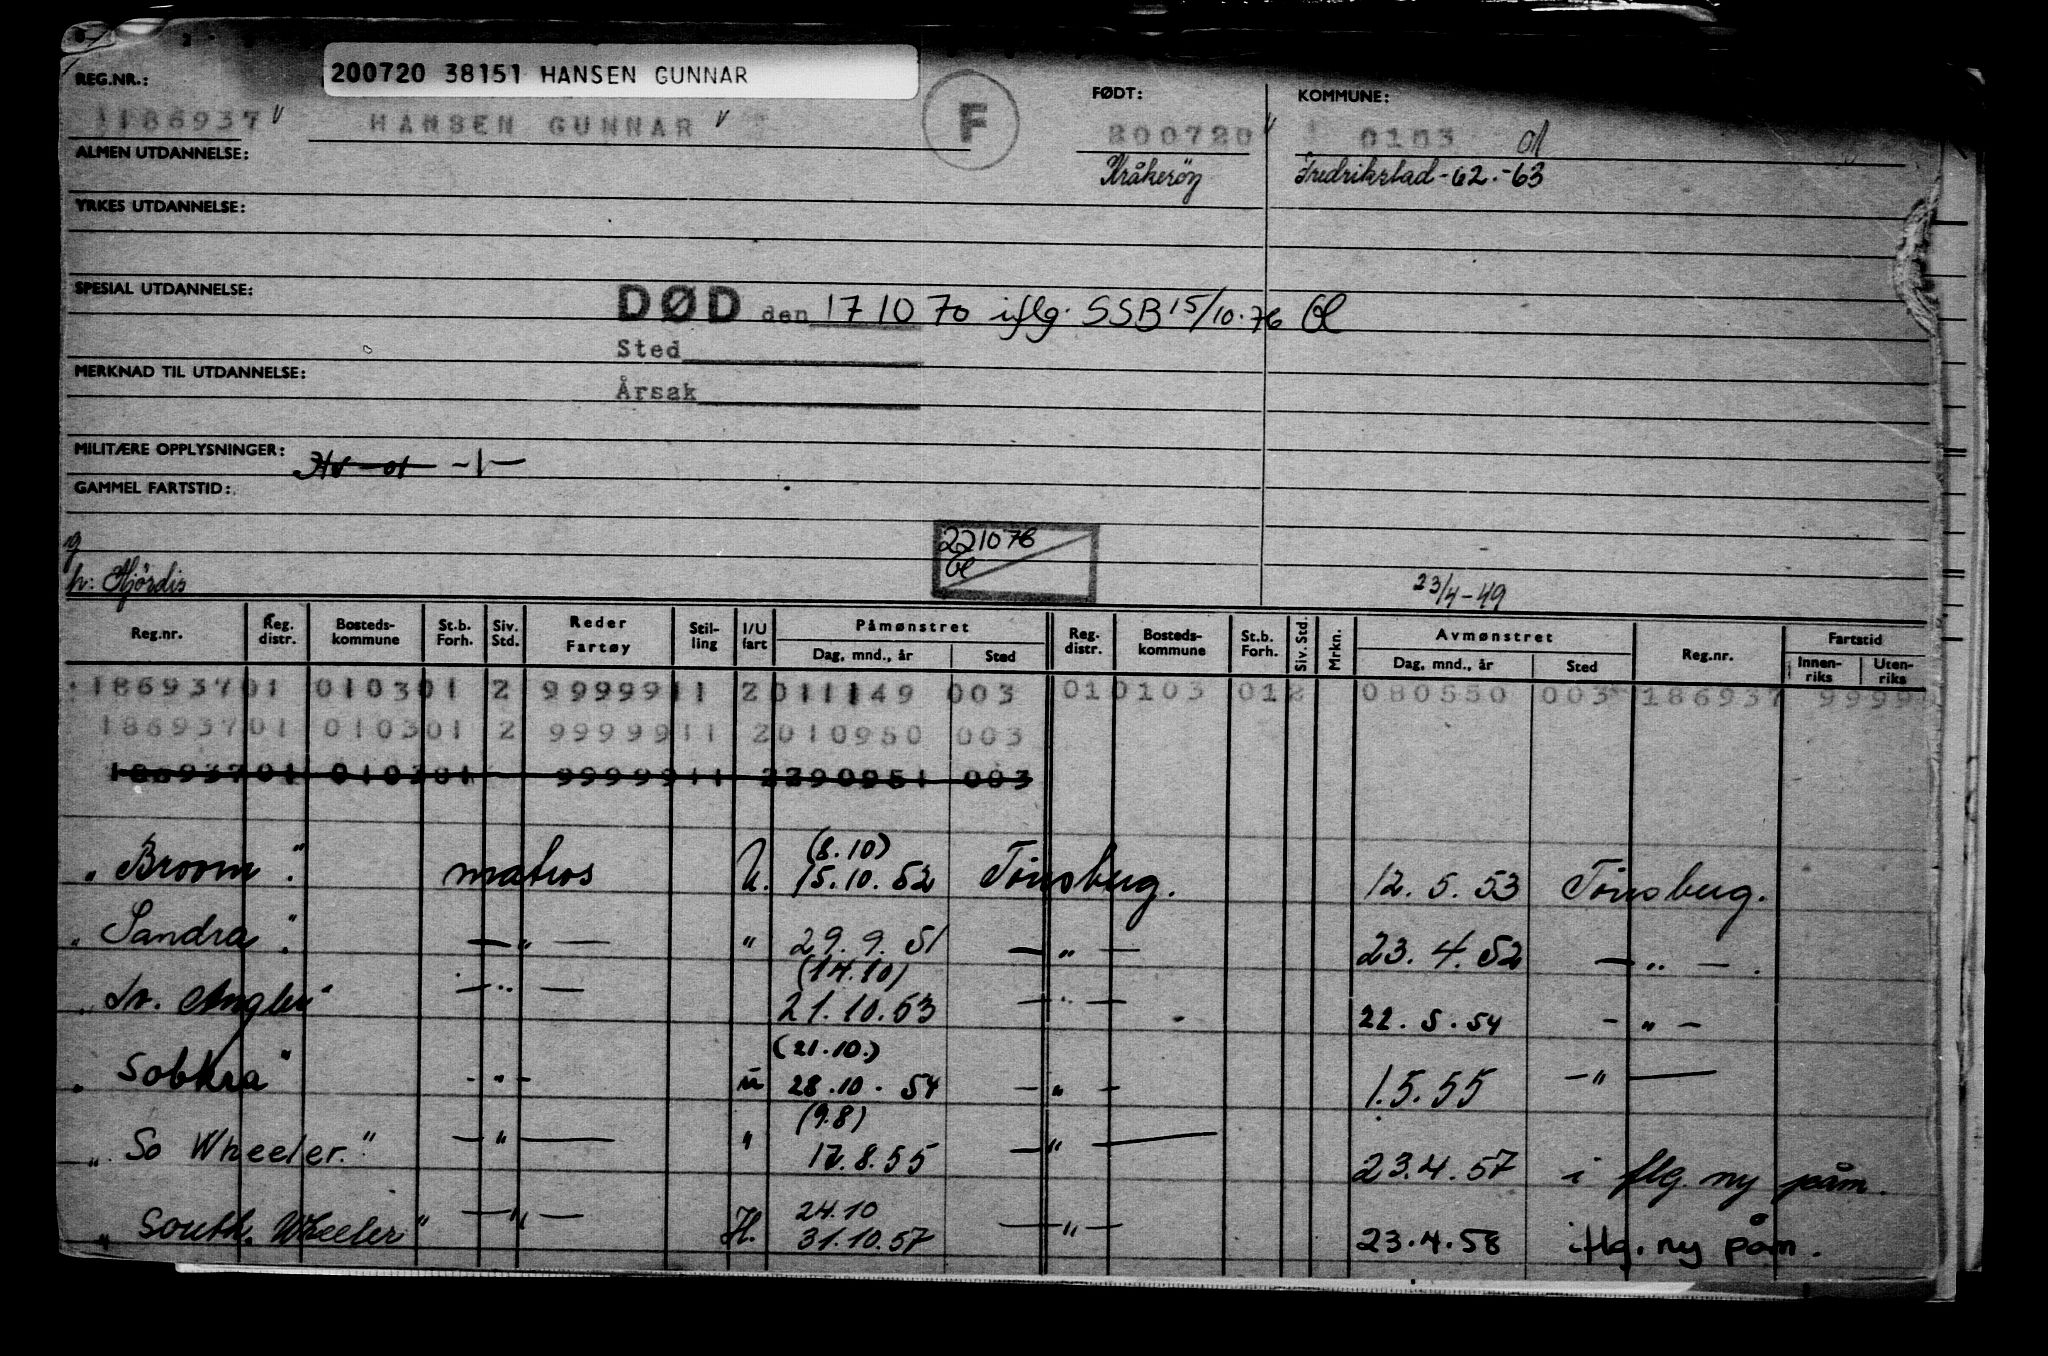 200720 38151 HANSEN GUNNAR
REG.NR.: FØDT: KOMMUNE:
1186937 v HANSEN GUNNAR v F 200720 v 0103 01
ALMEN UTDANNELSE: Kråkeröy Fredrikstad-62.-63
YRKES UTDANNELSE:
SPESIAL UTDANNELSE:
DØD den 17 10 70 iflg. SSB 15/10.76
Sted
MERKNAD TIL UTDANNELSE:
Årsak
MILITÆRE OPPLYSNINGER: -1-
GAMMEL FARTSTID:
g 221076
h: Hjördis 23/4-49
Reg.nr. Reg. distr. Bosteds-kommune St.b. Forh. Siv. Std. Reder Fartøy Stil-ling I/U fart Påmønstret Dag, mnd., år Sted Reg. distr. Bosteds-kommune St.b. Forh. Siv. Std. Mrkn. Avmønstret Dag, mnd., år Sted Reg.nr. Fartstid Innen-riks Uten-riks
186937 01 0103 01 2 99999 11 2 011149 003 01 0103 01 2 080550 003 186937 9999
186937 01 0103 01 2 99999 11 2 010950 003
186937 01 0103 01 99999 11 2 290951 003
(8.10)
" Broom". matros U. 15.10.52 Tönsberg. 12.5.53 Tönsberg.
" Sandra". -"- " 29.9.51 -"- 23.4.52 -"-.
(14.10)
-"- 21.10.53 -"- 22.5.54 -"-
(21.10.)
" Sobkra" -"- u 28.10.54 -"- 1.5.55 -"-
(9.8)
" So Wheeler." -"- " 17.8.55 -"- 23.4.57 i flg. ny påm.
24.10
" South. Wheeler" -"- H. 31.10.57 -"- 23.4.58 iflg. ny påm.